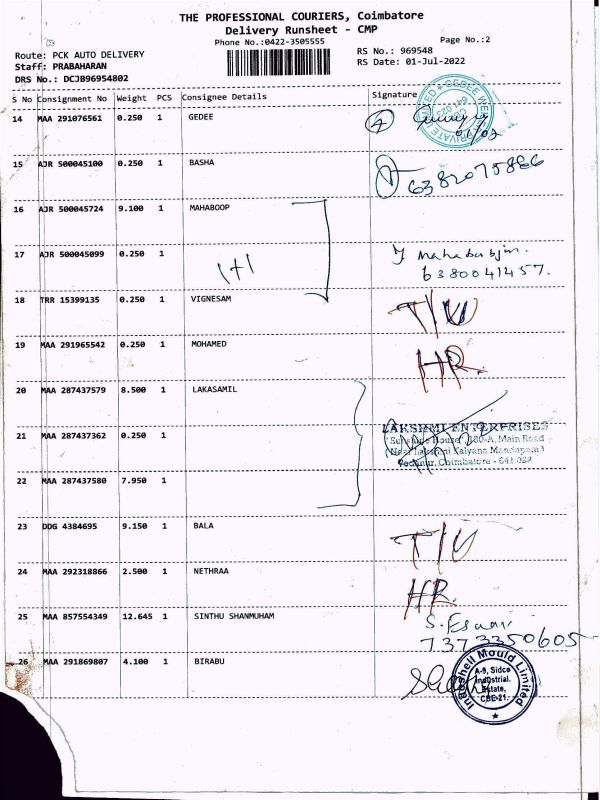 THE PROFESSIONAL COURIERS, Coimbatore
Delivery Runsheet - CMP
Phone No.:0422-3505555
Page No.:2
Route: PCK AUTO DELIVERY
RS No.: 969548
Staff: PRABAHARAN
RS Date: 01-Jul-2022
DRS No.: DCJB96954802
S No Consignment No Weight PCS Consignee Details Signature
14 MAA 291076561 0.250 1 GEDEE
15 AJR 500045100 0.250 1 BASHA
6382075866
16 AJR 500045724 9.100 1 MAHABOOP
17 AJR 500045099 0.250 1
1+1
Mahabubjin.
6380041457.
18 TRR 15399135 0.250 1 VIGNESAM
19 MAA 291965542 0.250 1 MOHAMED
HR
20 MAA 287437579 8.500 1 LAKASAMIL
LAKSHMI ENTERPRISES
21 MAA 287437362 0.250 1
180-A, Main Road
Kalyana Mandapam
Coimbatore - 641
22 MAA 287437580 7.950 1
23 DDG 4384695 9.150 1 BALA
24 MAA 292318866 2.500 1 NETHRAA
HR
25 MAA 857554349 12.645 1 SINTHU SHANMUHAM
7373350605
26 MAA 291869807 4.100 1 BIRABU
Mould Limited
A-9, Sidco
Industrial
Estate,
CBE-21.